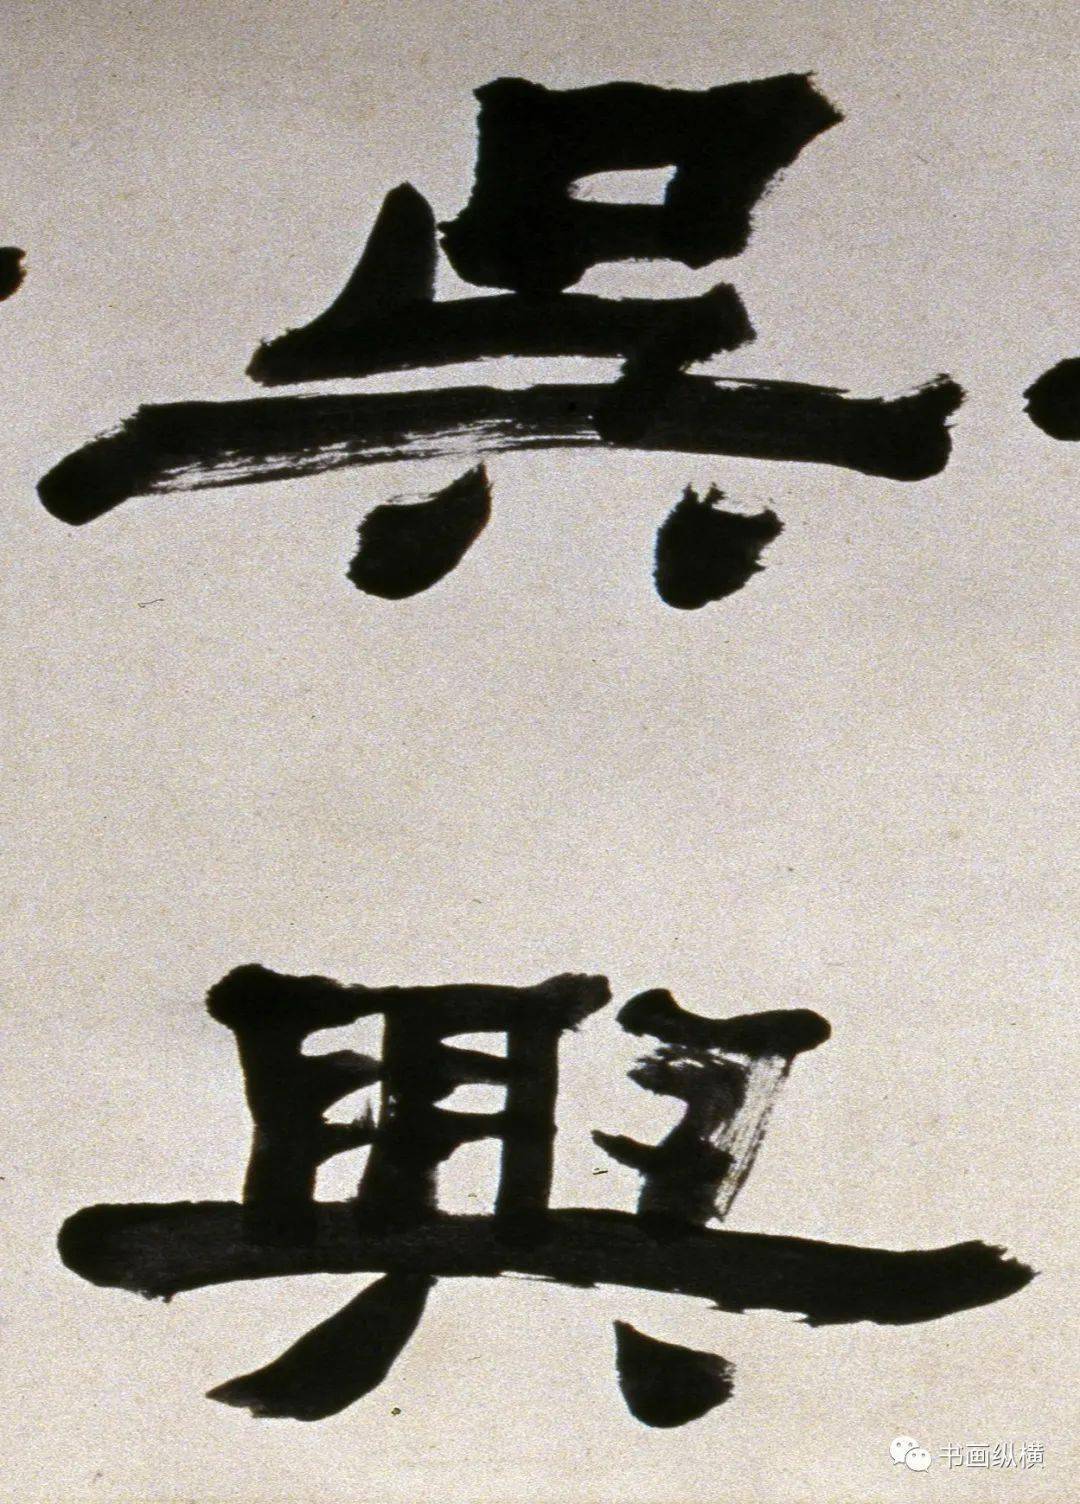 吳
興
书画纵横